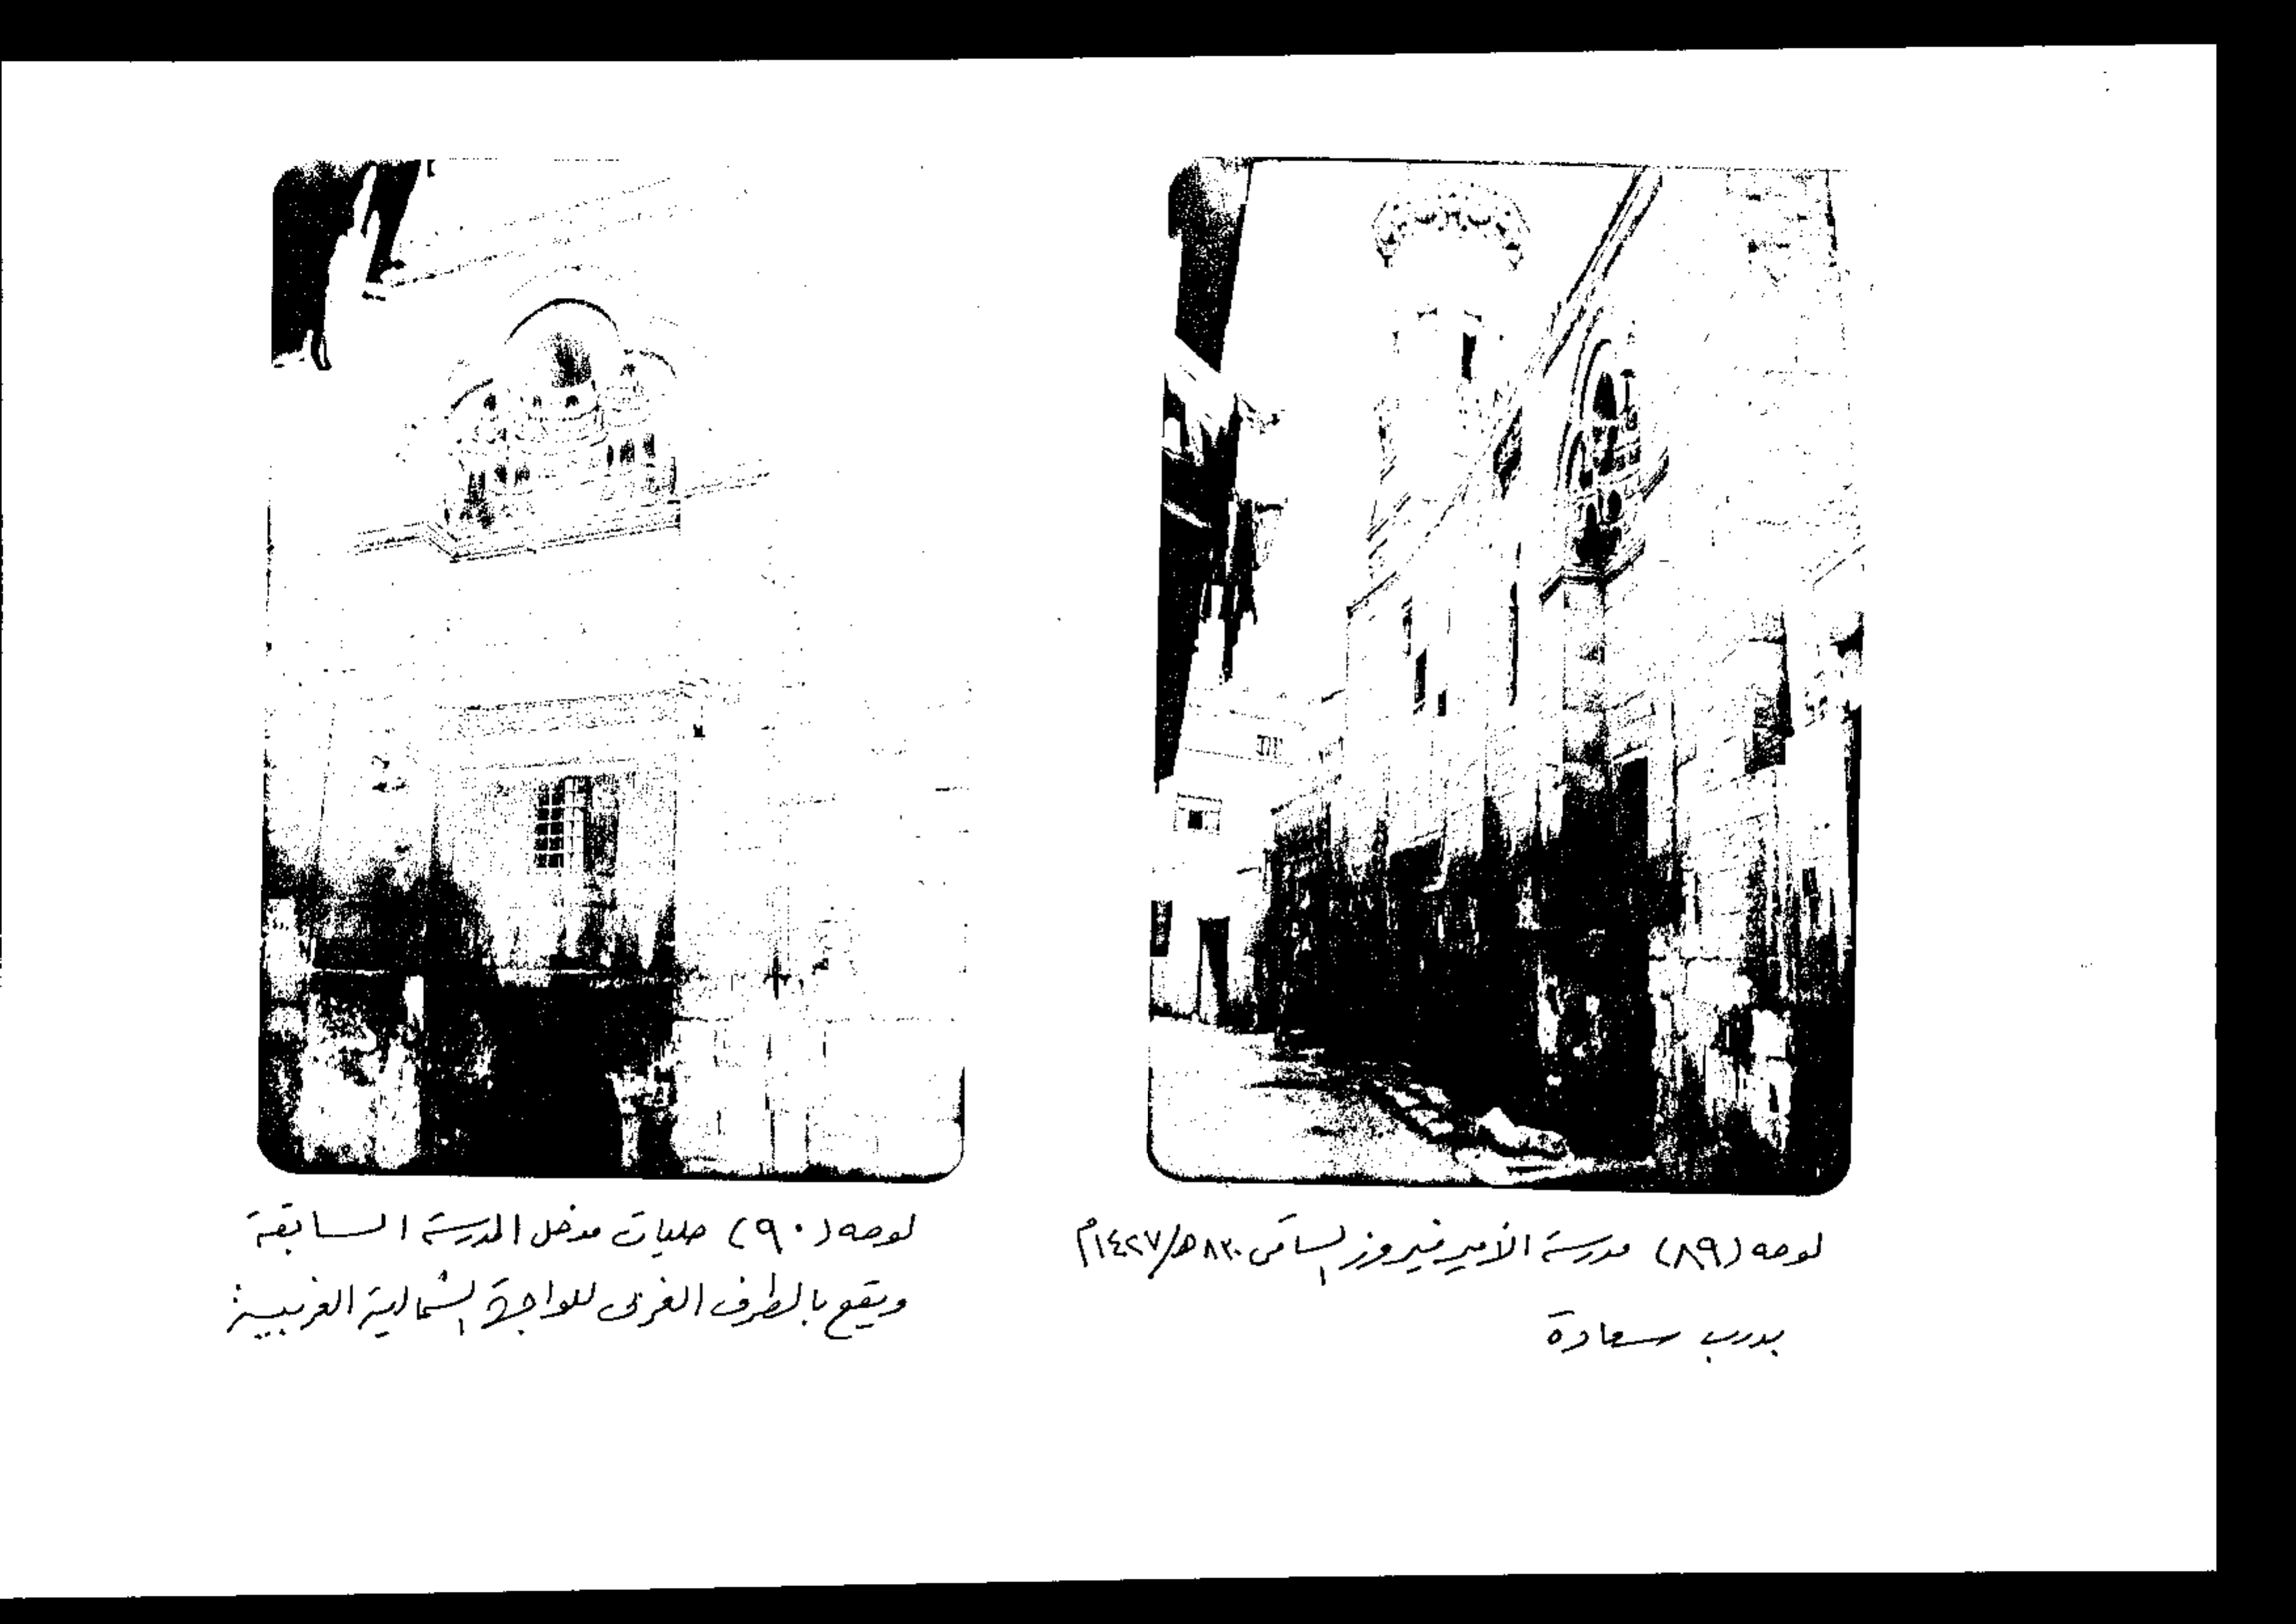 لوحه (٨٩) مدرسة الأمير فيروز الساقى ٨٣٠هـ/١٤٢٧م
بدرب سعادة
لوحه (٩٠) حليات مدخل المدرسة السابقة
ويقع بالطرف الغربى للواجهة الشمالية الغربية